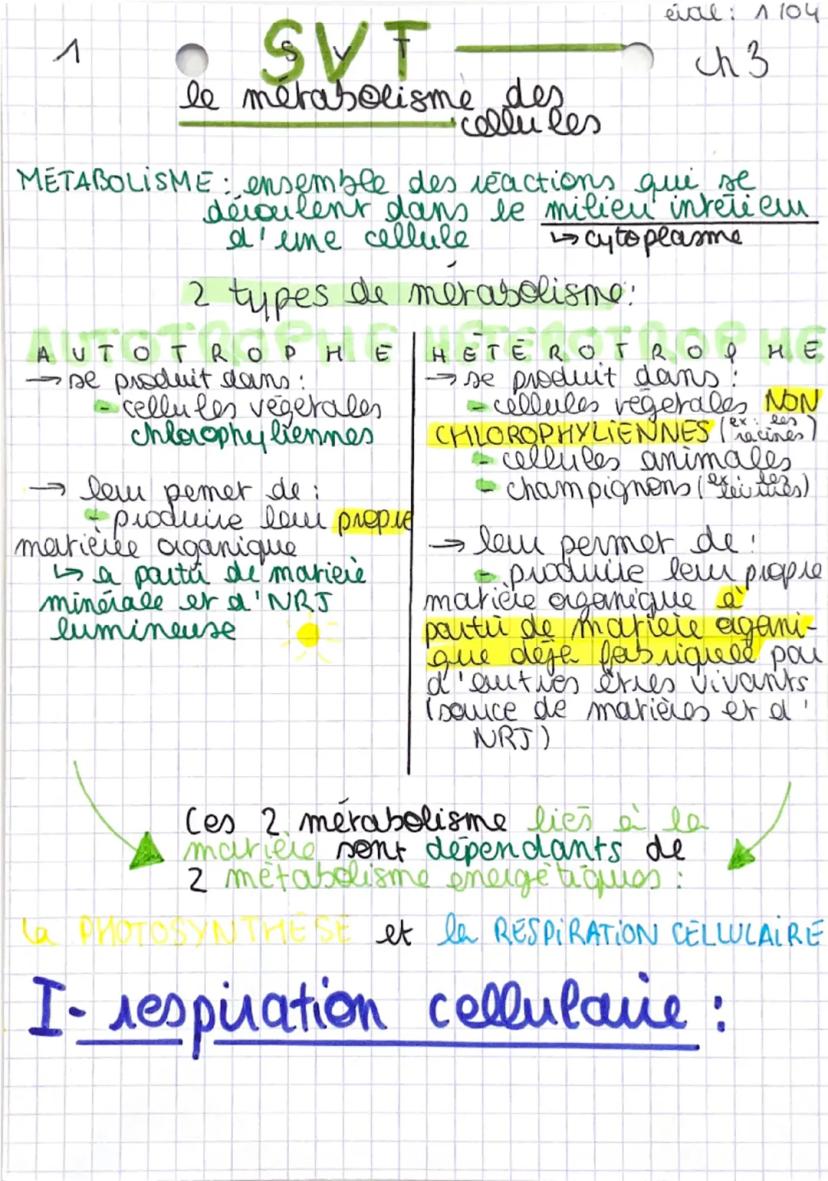 éval: 1/04
1
SVT
SVT
ch 3
le métabolisme des
cellules
MÉTABOLISME: ensemble des réactions qui se
déroulent dans le milieu intérieur
d'une cellule
↳ cytoplasme
2 types de métabolisme:
AUTOTROPHE
→ se produit dans:
- cellules végétales
chlorophyliennes
→ leur permet de:
- produire leur propre
matière organique
↳ à partir de matière
minérale et d'NRJ
lumineuse
HÉTÉROTROPHE
→ se produit dans:
- cellules végétales NON
CHLOROPHYLIENNES (ex: les
racines)
- cellules animales
- champignons (ex: les
levures)
→ leur permet de:
- produire leur propre
matière organique à
partir de matière organi-
que déjà fabriquée par
d'autres êtres vivants
(source de matières et d'
NRJ)
Ces 2 métabolisme liés à la
matière sont dépendants de
2 métabolisme énergétiques:
la PHOTOSYNTHÈSE et la RESPIRATION CELLULAIRE
I- respiration cellulaire: